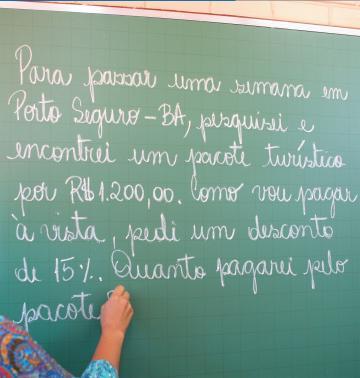 Para passar uma semana em
Porto Seguro-BA, pesquisei e
encontrei um pacote turístico
por R$1.200,00. Como vou pagar
à vista, pedi um desconto
de 15%. Quanto pagarei pelo
pacote